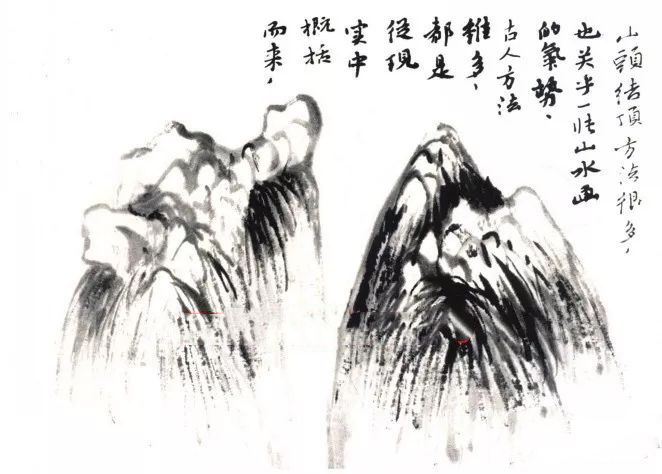 山頭结頂方法很多，
也关乎一张山水画
的氣勢、
古人方法
雖多，
都是
從現
实中
概括
而来，